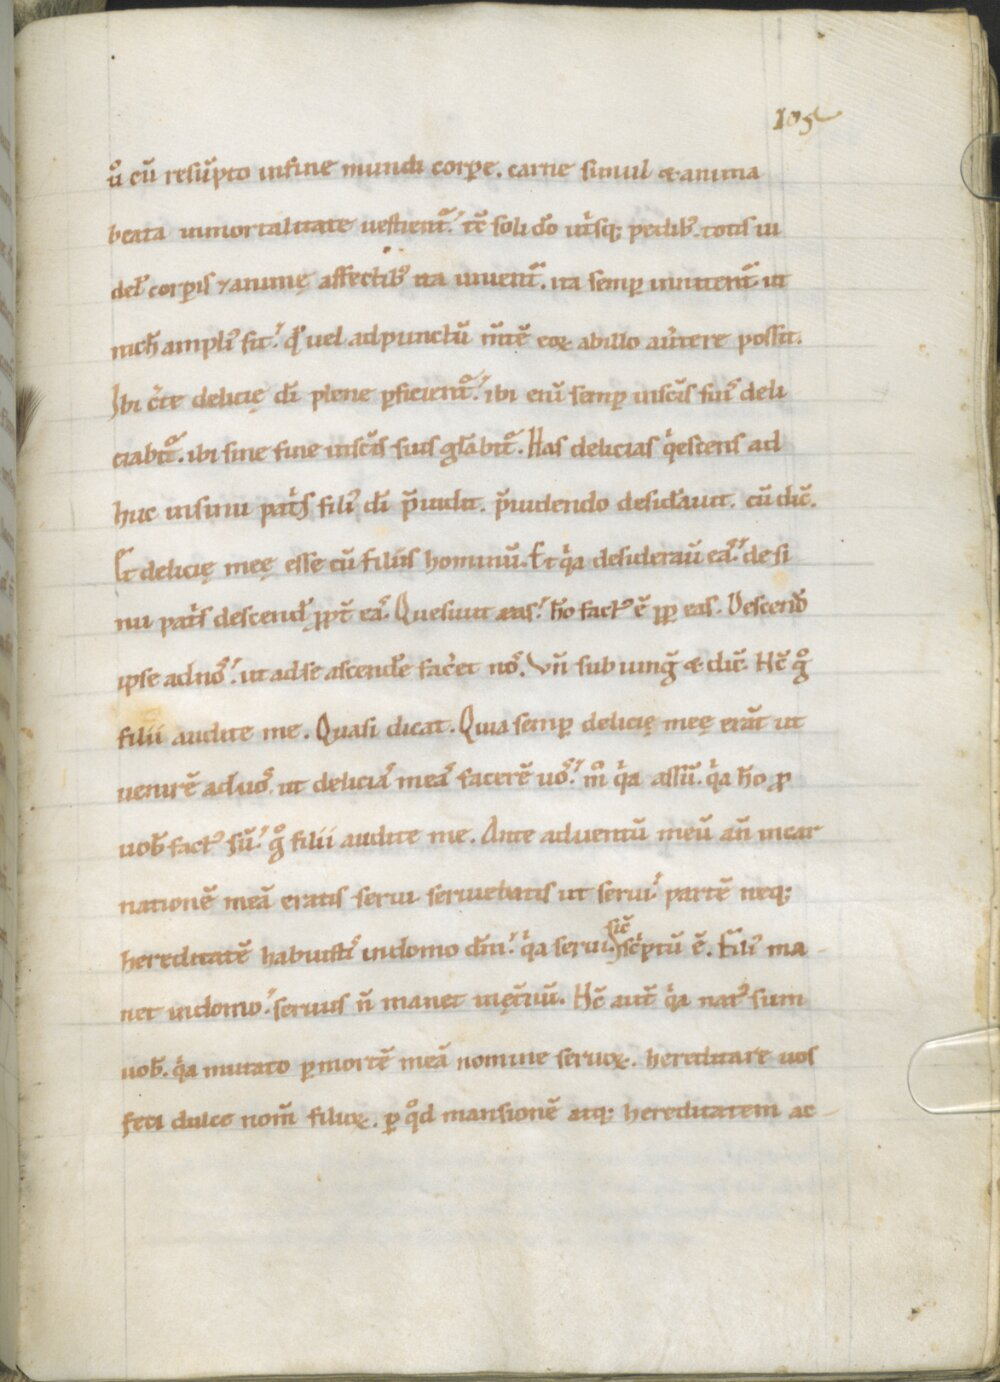 105
u̾o cū resūpto infine mundi corꝑe. carne simul & anima
beata inmortalitate uestient᷑. tc̄ soli do ut̾sq; pedib;. totis ui
del; corꝑis ⁊ animę affectib; ita uiuent᷑. ita semꝑ inuitent᷑ ut
nich̄ ampli᷒ sit. qd̾ uel adpunctū m̄tē eoꝝ abillo au̾tere possit.
Ibi c̾te delicię dī plene ꝑficient᷑. ibi enī semꝑ insc̄is suis deli
ciabit᷑. ibi sine fine insc̄is suis gl̄abit᷑. Has delicias q̾escens ad
huc insinu pat̾s fili᷒ dī p̄uidit. p̄uidendo desid̾auit. cū dic̄.
Et delicię meę esse cū filiis hominū. Et q̾a desiderau̅ ea᷒. de si
nu pat̾s descend̾ ꝓpt̄ ea᷒. Quesiuit eas. h̄o fact᷒ ē ꝓꝑ eas. Descend̾
ipse adno᷒. ut adse ascend̾e fac̾et no᷒. Vn̄ subiung̅ & dic̄. Nc̄ g̊
filii audite me. Quasi dicat. Quia semꝑ delicię meę erāt ut
uenirē aduo᷒. ut delicia᷒ mea᷒ facerē uo᷒. m̊ q̾a assū. q̾a h̄o ꝓ
uob̄ fact᷒ sū. g̊ filii audite me. Ante aduentū meū an̄ incar
nationē meā eratis serui seruiebatis ut serui. partē neq;
hereditatē habuisti᷒ indomo dn̄i. q̾a serui. sic̄ sc̾ptū ē. Fili᷒ ma
net indomo. seruus n̄ manet inęt̾nū. Nc̄ aut̄ q̾a nat᷒ sum
uob̄. q̾a mutato ꝑmortē meā nomine seruoꝝ. hereditare uos
feci dulce nom̄ filioꝝ. ꝑ qd̊ mansionē atq; hereditatem ac